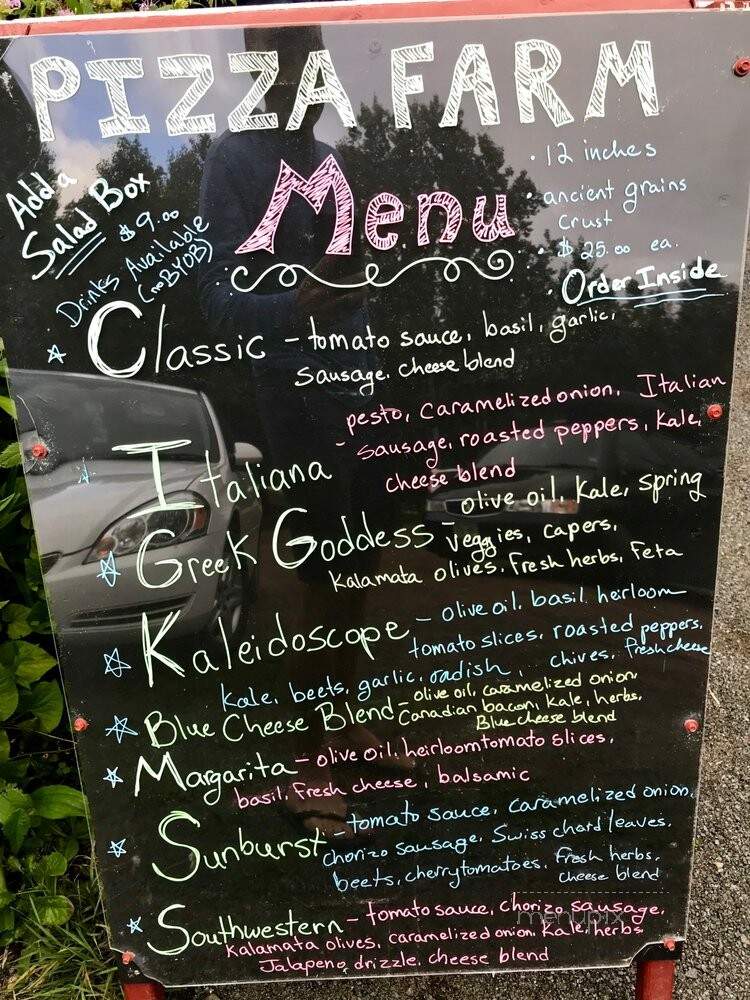 PIZZA FARM
Menu
Add a
Salad Box
$9.00
Drinks Available
(no BYOB)
• 12 inches
• ancient grains
crust
• $25.00 ea.
• Order Inside
☆ Classic - tomato sauce, basil, garlic,
sausage, cheese blend
☆ Italiana - pesto, caramelized onion, Italian
sausage, roasted peppers, kale,
cheese blend
☆ Greek Goddess - olive oil, kale, spring
veggies, capers,
kalamata olives, fresh herbs, feta
☆ Kaleidoscope - olive oil, basil, heirloom
tomato slices, roasted peppers,
kale, beets, garlic, radish, chives, fresh cheese
☆ Blue Cheese Blend - olive oil, caramelized onion,
Canadian bacon, kale, herbs,
Blue cheese blend
☆ Margarita - olive oil, heirloom tomato slices,
basil, fresh cheese, balsamic
☆ Sunburst - tomato sauce, caramelized onion,
chorizo sausage, Swiss chard leaves,
beets, cherry tomatoes, fresh herbs,
cheese blend
☆ Southwestern - tomato sauce, chorizo sausage,
kalamata olives, caramelized onion, kale, herbs
Jalapeno drizzle, cheese blend
menupix